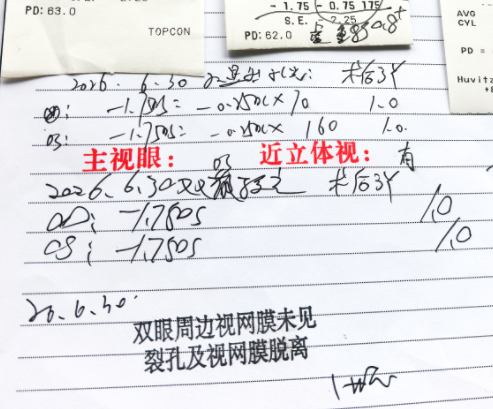 PD: 63.0
TOPCON
- 1.75 - 0.75 175
S.E. - 2.25
PD: 62.0
AVG
CYL
PD =
Huvitz
+8
2026. 6.30 术后3Y
OD: -1.75DS= -0.25DC×70 1.0
OS: -1.75DS= -0.25DC× 160 1.0
主视眼: OS 近立体视: 有
2026.6.30 术后3Y
OD: -1.75DS 1.0
OS: -1.75DS 1.0
26.6.30.
双眼周边视网膜未见
裂孔及视网膜脱离